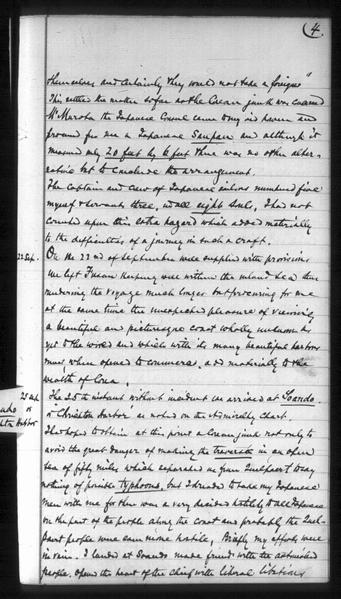 4.
themselves and certainly they would not take a foreigner"
This settled the matter so far as the Corean junk was concerned
Mr Murota the Japanese Consul came to my and
procured for me a Japanese Sampan and although it
measured only 20 feet by 6 feet there was no other alter-
native but to conclude the arrangement.
The Captain and Crew of Japanese sailors numbered five
myself & servants three, in all eight souls, I had not
counted upon this extra hazard which added materially
to the difficulties of a journey in such a craft.
22 Sep.
On the 22nd of September well supplied with provisions
we left Fusan keeping well within the inland sea thus
rendering the voyage much longer but procuring for me
at the same time the unexpected pleasure of viewing
a beautiful and picturesque coast wholly unknown as
yet to the world and which with its many beautiful harbors
must, when opened to commerce, add materially to the
wealth of Corea.
25 Sep
The 25th instant without incident we arrived at Soando
or Crichton Harbor as noted on the Admiralty Chart.
I had hoped to obtain at this point a Corean junk not only to
avoid the great danger of making the traverse in an open
sea of fifty miles which separated us from Quelpaert to say
nothing of possible typhoons, but I dreaded to take my Japanese
men with me for there was a very decided hostility to all Japanese
on the part of the people along the Coast and probably the Quel-
paert people were even more hostile, Briefly my efforts were
in vain. I landed at Soando made friends with the astonished
people, opened the heart of the Chief with liberal libations